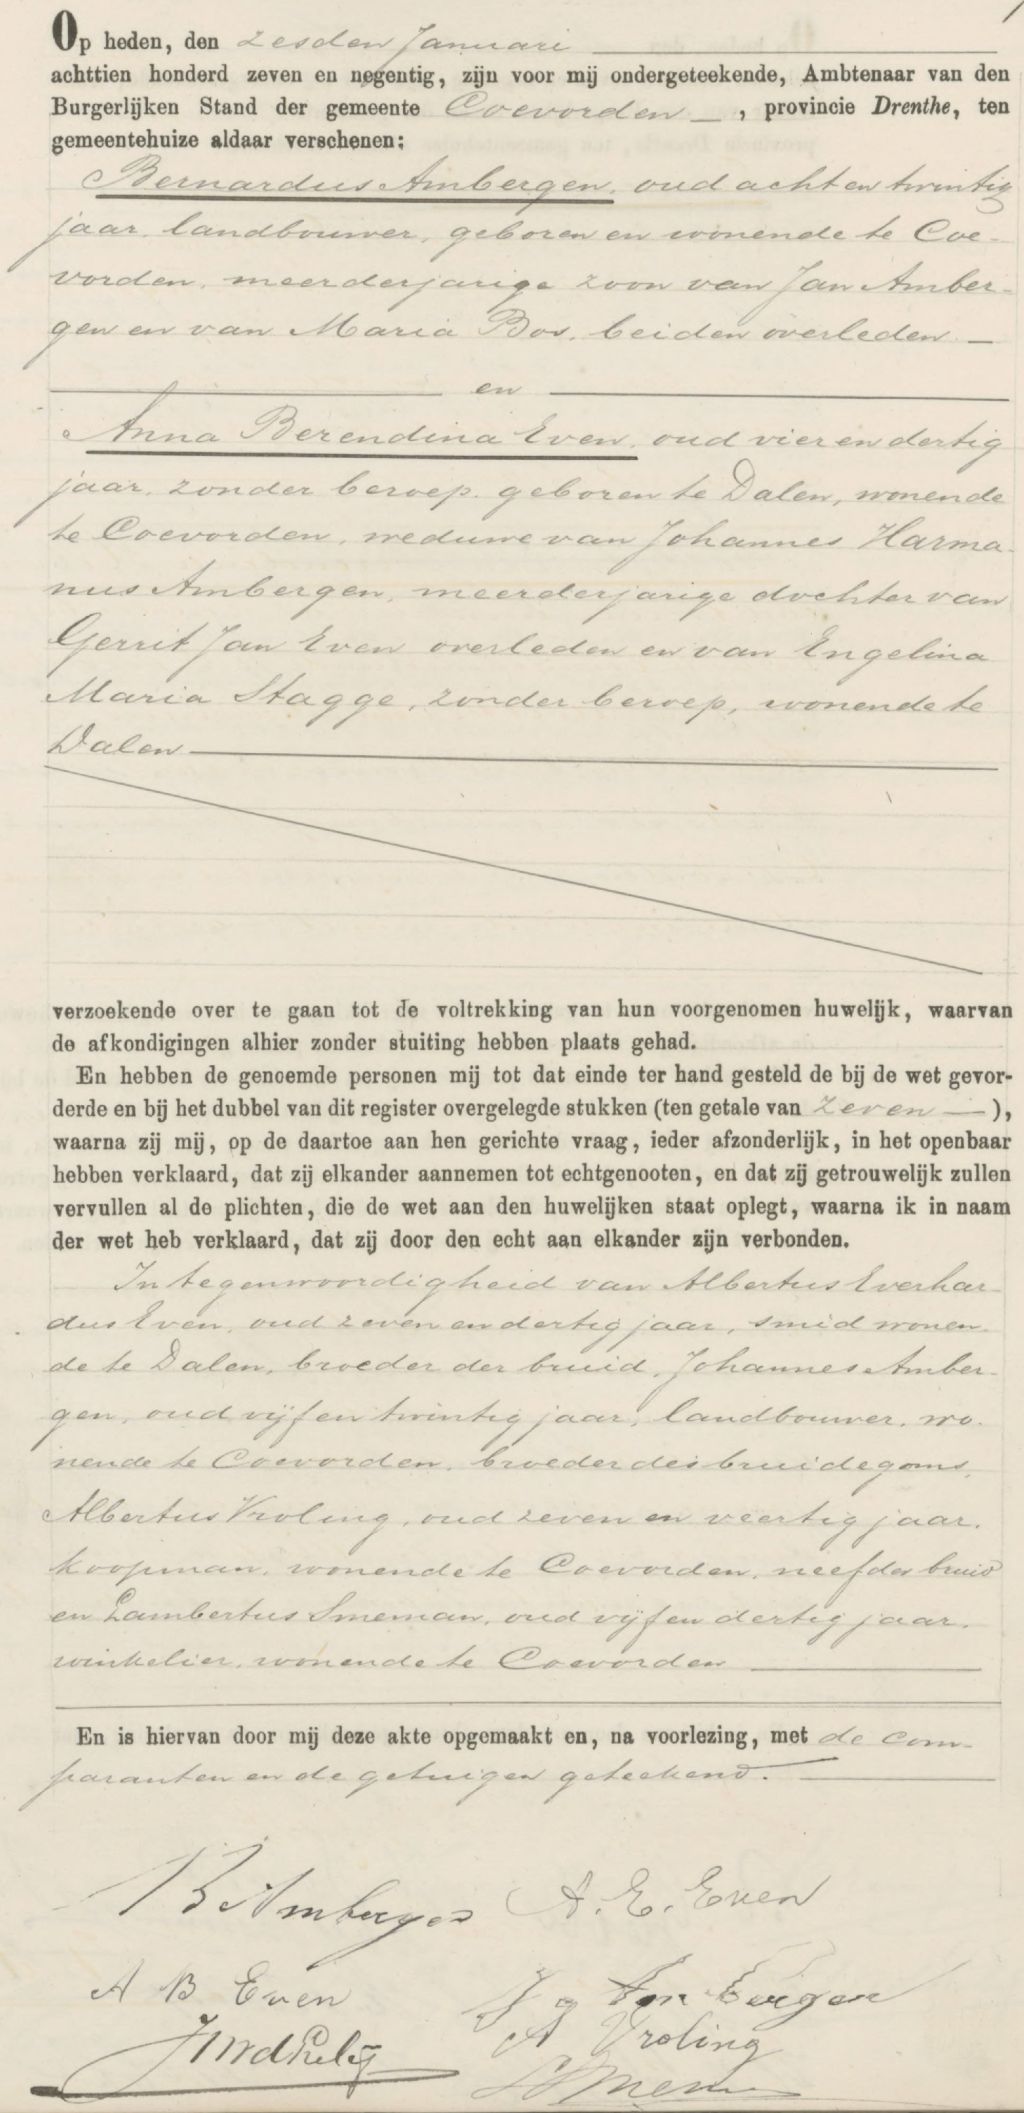 Op heden, den zesden Januari
achttien honderd zeven en negentig, zijn voor mij ondergeteekende, Ambtenaar van den
Burgerlijken Stand der gemeente Coevorden, provincie Drenthe, ten
gemeentehuize aldaar verschenen:
Bernardus Ambergen, oud acht en twintig
jaar, landbouwer, geboren en wonende te Coe-
vorden, meerderjarige zoon van Jan Amber-
gen en van Maria Bos, beiden overleden
en
Anna Berendina Even, oud vier en dertig
jaar, zonder beroep, geboren te Dalen, wonende
te Coevorden, weduwe van Johannes Harma-
nus Ambergen, meerderjarige dochter van
Gerrit Jan Even overleden en van Engelina
Maria Stagge, zonder beroep, wonende te
Dalen
verzoekende over te gaan tot de voltrekking van hun voorgenomen huwelijk, waarvan
de afkondigingen alhier zonder stuiting hebben plaats gehad.
En hebben de genoemde personen mij tot dat einde ter hand gesteld de bij de wet gevor-
derde en bij het dubbel van dit register overgelegde stukken (ten getale van zeven),
waarna zij mij, op de daartoe aan hen gerichte vraag, ieder afzonderlijk, in het openbaar
hebben verklaard, dat zij elkander aannemen tot echtgenooten, en dat zij getrouwelijk zullen
vervullen al de plichten, die de wet aan den huwelijken staat oplegt, waarna ik in naam
der wet heb verklaard, dat zij door den echt aan elkander zijn verbonden.
In tegenwoordigheid van Albertus Everhar-
dus Even, oud zeven en dertig jaar, smid wonen-
de te Dalen, broeder der bruid, Johannes Amber-
gen, oud vijf en twintig jaar, landbouwer, wo-
nende te Coevorden, broeder des bruidegoms,
Albertus Vroling, oud zeven en veertig jaar,
koopman, wonende te Coevorden, neef der bruid
en Lambertus Smeman, oud vijf en dertig jaar,
winkelier, wonende te Coevorden
En is hiervan door mij deze akte opgemaakt en, na voorlezing, met de com-
paranten en de getuigen geteekend.
B Ambergen A. E. Even
A B Even J Ambergen
A Vroling